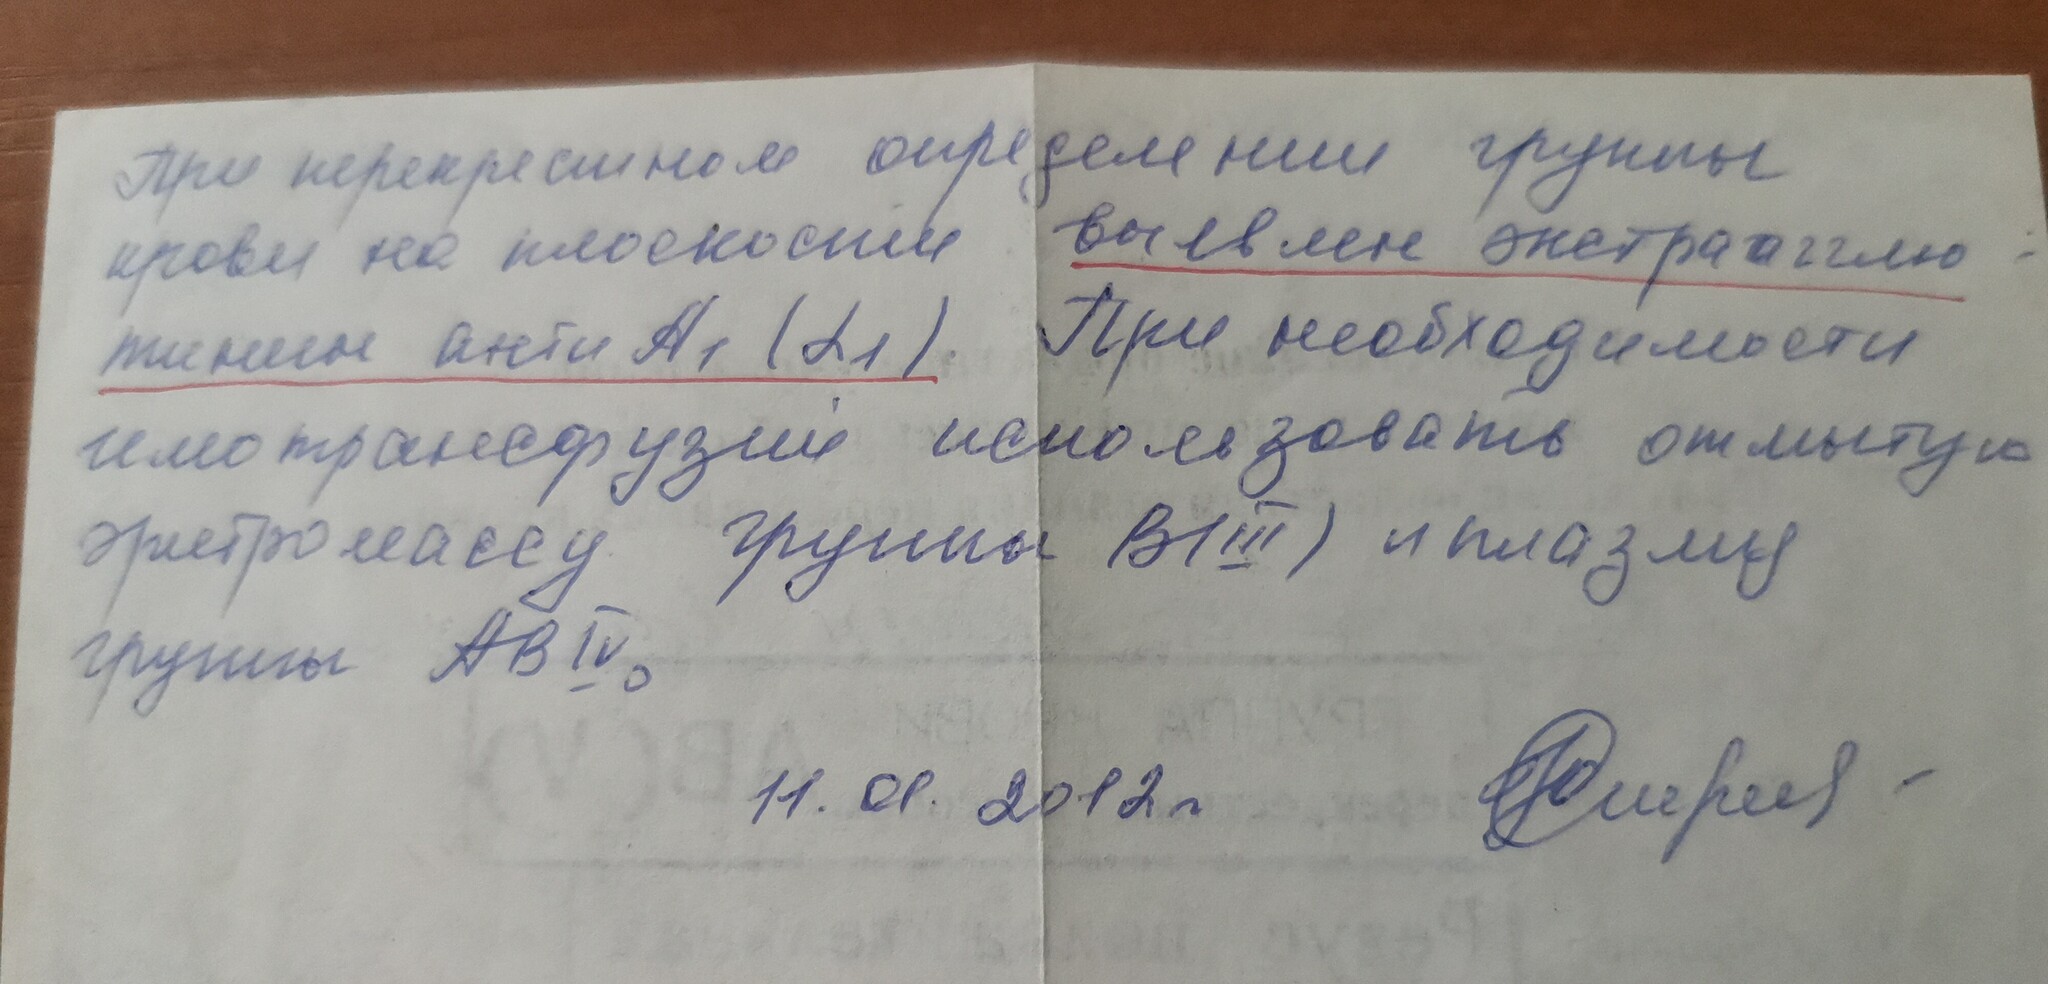 При перекрестном определении группы
крови на плоскости выявлен экстраагглю-
тинин анти А₁ (α₁). При необходимости
гемотрансфузий использовать отмытую
эритромассу группы В(III) и плазму
группы АВ IV.
11.01.2012г